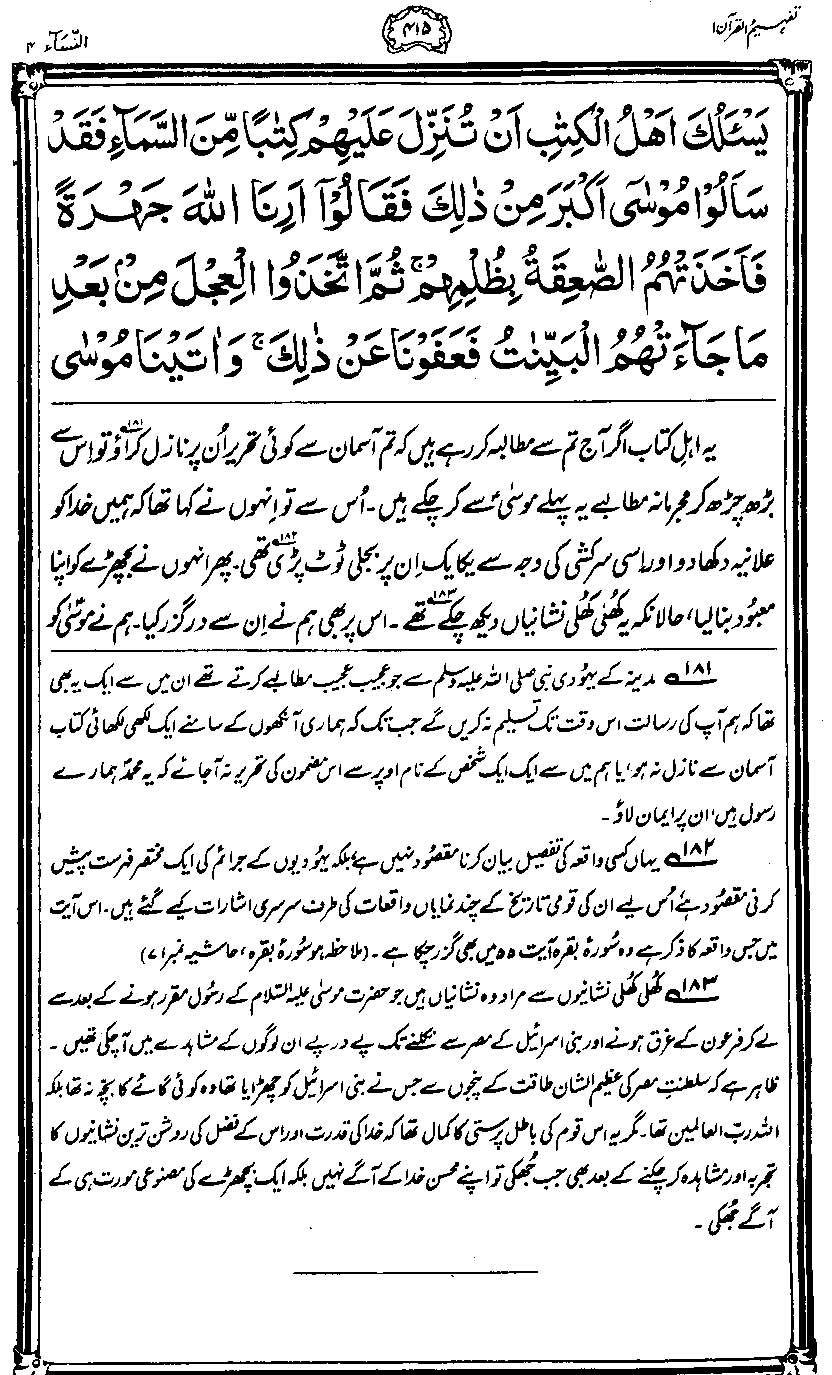 تفہیم القرآن ۱
۴۱۵
النسآء ۴
يَسْـَٔلُكَ اَهْلُ الْكِتٰبِ اَنْ تُنَزِّلَ عَلَيْهِمْ كِتٰبًا مِّنَ السَّمَآءِ فَقَدْ
سَاَلُوْا مُوْسٰٓى اَكْبَرَ مِنْ ذٰلِكَ فَقَالُوْٓا اَرِنَا اللّٰهَ جَهْرَةً
فَاَخَذَتْهُمُ الصّٰعِقَةُ بِظُلْمِهِمْ ۚ ثُمَّ اتَّخَذُوا الْعِجْلَ مِنْۢ بَعْدِ
مَا جَآءَتْهُمُ الْبَيِّنٰتُ فَعَفَوْنَا عَنْ ذٰلِكَ ۚ وَاٰتَيْنَا مُوْسٰى
یہ اہلِ کتاب اگر آج تم سے مطالبہ کر رہے ہیں کہ تم آسمان سے کوئی تحریر اُن پر نازل کراؤ۱۸۱ تو اِس سے
بڑھ چڑھ کر مجرمانہ مطالبے یہ پہلے موسیٰؑ سے کر چکے ہیں۔ اُس سے تو اِنہوں نے کہا تھا کہ ہمیں خدا کو
علانیہ دکھا دو اور اسی سرکشی کی وجہ سے یکایک اِن پر بجلی ٹوٹ پڑی تھی۱۸۲۔ پھر انہوں نے بچھڑے کو اپنا
معبود بنا لیا، حالانکہ یہ کھُلی کھُلی نشانیاں دیکھ چکے تھے۱۸۳۔ اس پر بھی ہم نے اِن سے درگزر کیا۔ ہم نے موسٰیؑ کو
۱۸۱ مدینہ کے یہودی نبی صلی اللہ علیہ وسلم سے جو عجیب عجیب مطالبے کرتے تھے ان میں سے ایک یہ بھی
تھا کہ ہم آپ کی رسالت اس وقت تک تسلیم نہ کریں گے جب تک کہ ہماری آنکھوں کے سامنے ایک لکھی لکھائی کتاب
آسمان سے نازل نہ ہو، یا ہم میں سے ایک ایک شخص کے نام اوپر سے اس مضمون کی تحریر نہ آجائے کہ یہ محمدؐ ہمارے
رسول ہیں، ان پر ایمان لاؤ۔
۱۸۲ یہاں کسی واقعہ کی تفصیل بیان کرنا مقصود نہیں ہے، بلکہ یہودیوں کے جرائم کی ایک مختصر فہرست پیش
کرنی مقصود ہے، اُس لیے ان کی قومی تاریخ کے چند نمایاں واقعات کی طرف سرسری اشارات کیے گئے ہیں۔ اس آیت
میں جس واقعہ کا ذکر ہے وہ سُورۂ بقرہ آیت ۵۵ میں بھی گزر چکا ہے۔ (ملاحظہ ہو سُورۂ بقرہ، حاشیہ نمبر ۷۱)
۱۸۳ کھُلی کھُلی نشانیوں سے مراد وہ نشانیاں ہیں جو حضرت موسیٰ علیہ السّلام کے رسُول مقرر ہونے کے بعد سے
لے کر فرعون کے غرق ہونے اور بنی اسرائیل کے مصر سے نکلنے تک پے در پے ان لوگوں کے مشاہدے میں آچکی تھیں۔
ظاہر ہے کہ سلطنتِ مصر کی عظیم الشان طاقت کے پنجوں سے جس نے بنی اسرائیل کو چھڑایا تھا وہ کوئی گائے کا بچہ نہ تھا بلکہ
اللہ ربّ العالمین تھا۔ مگر یہ اس قوم کی باطل پرستی کا کمال تھا کہ خدا کی قدرت اور اس کے فضل کی روشن ترین نشانیوں کا
تجربہ اور مشاہدہ کر چکنے کے بعد بھی جب جھُکی تو اپنے محسن خدا کے آگے نہیں بلکہ ایک بچھڑے کی مصنوعی مورت ہی کے
آگے جھُکی۔